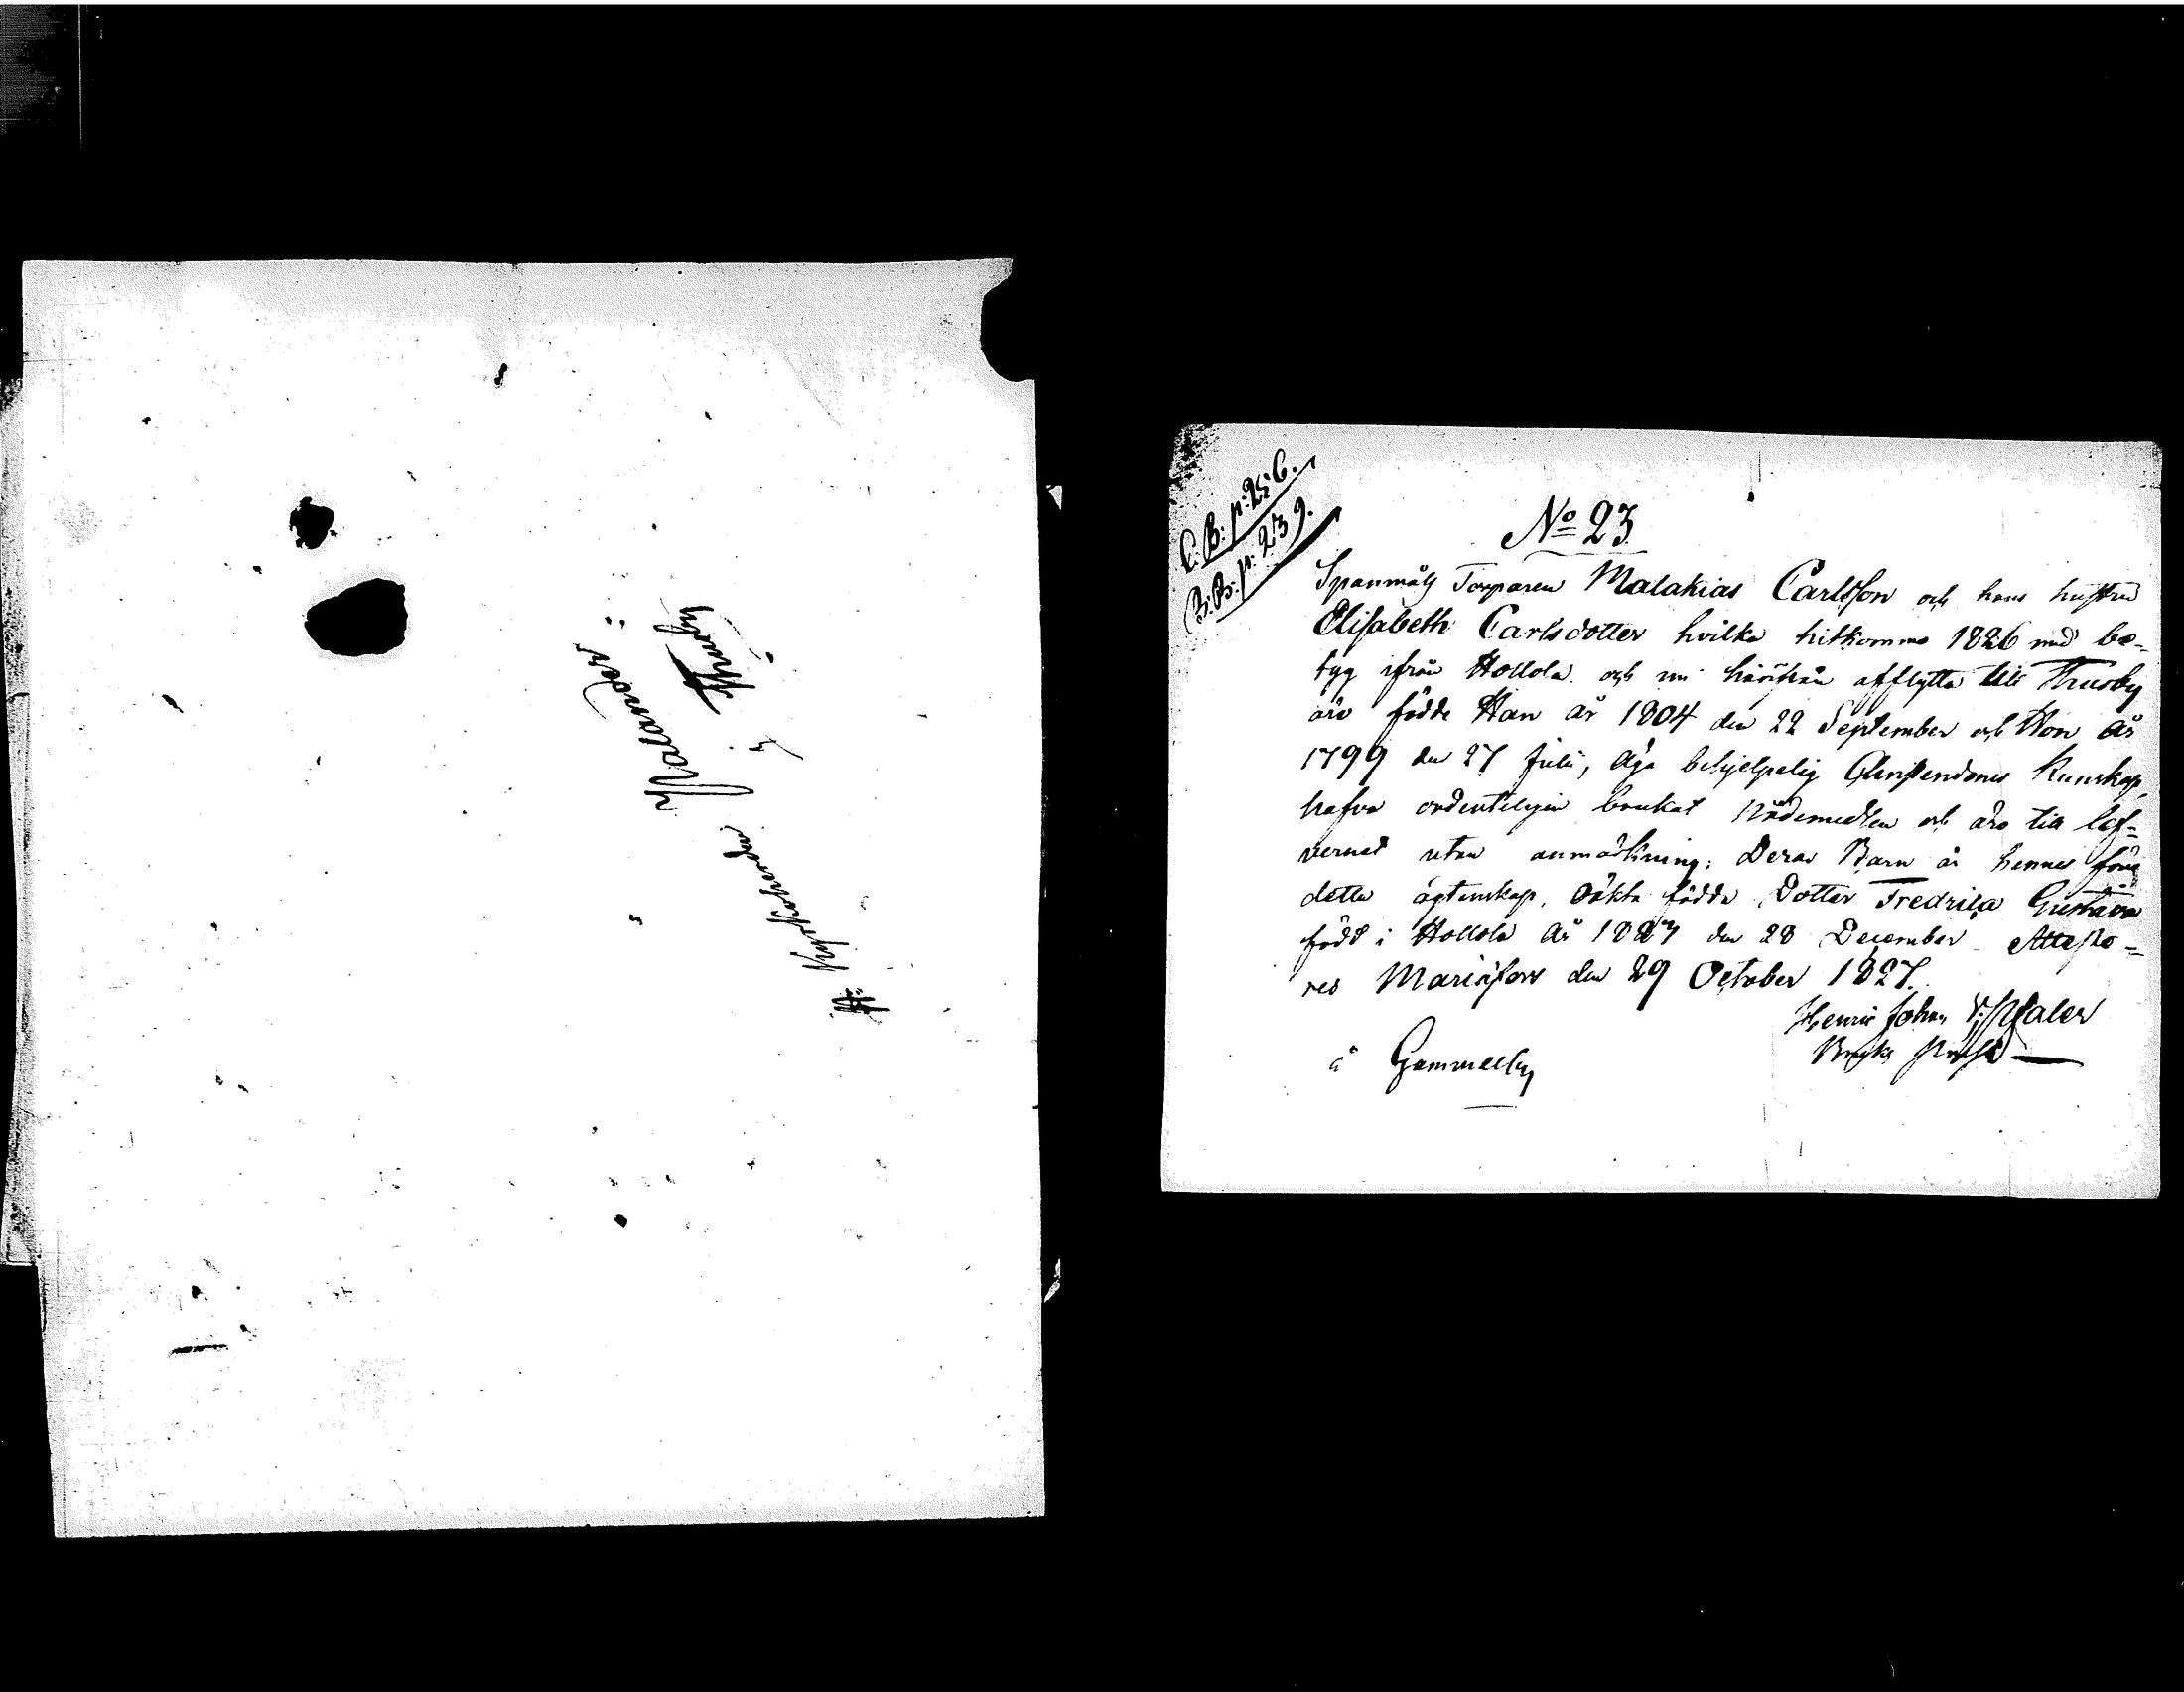 Kyrkoherden Malander
i Thusby
C.B. p: 256.
B.B. p. 239.
No 23
Spanmåls Torparen Malakias Carlsson och hans hustru
Elisabeth Carlsdotter hvilka hitkomme 1826 med be-
tyg ifrån Hollola och nu härifrån afflytta till Thusby
äro födde Han år 1804 den 22 September och Hon år
1799 den 27 Julii, äga behjelpelig Christendoms Kunskap,
hafva ordenteligen brukat Nådemedlen och äro till lef-
vernet utan anmärkning; Deras Barn är hennes före
detta ägtenskap, oäkta födda Dotter Fredrica Gustava
född i Hollola år den 28 December Atteste-
res Mariæfors den 29 October 1827.
Henric Johan
Bruks
å Gammelby